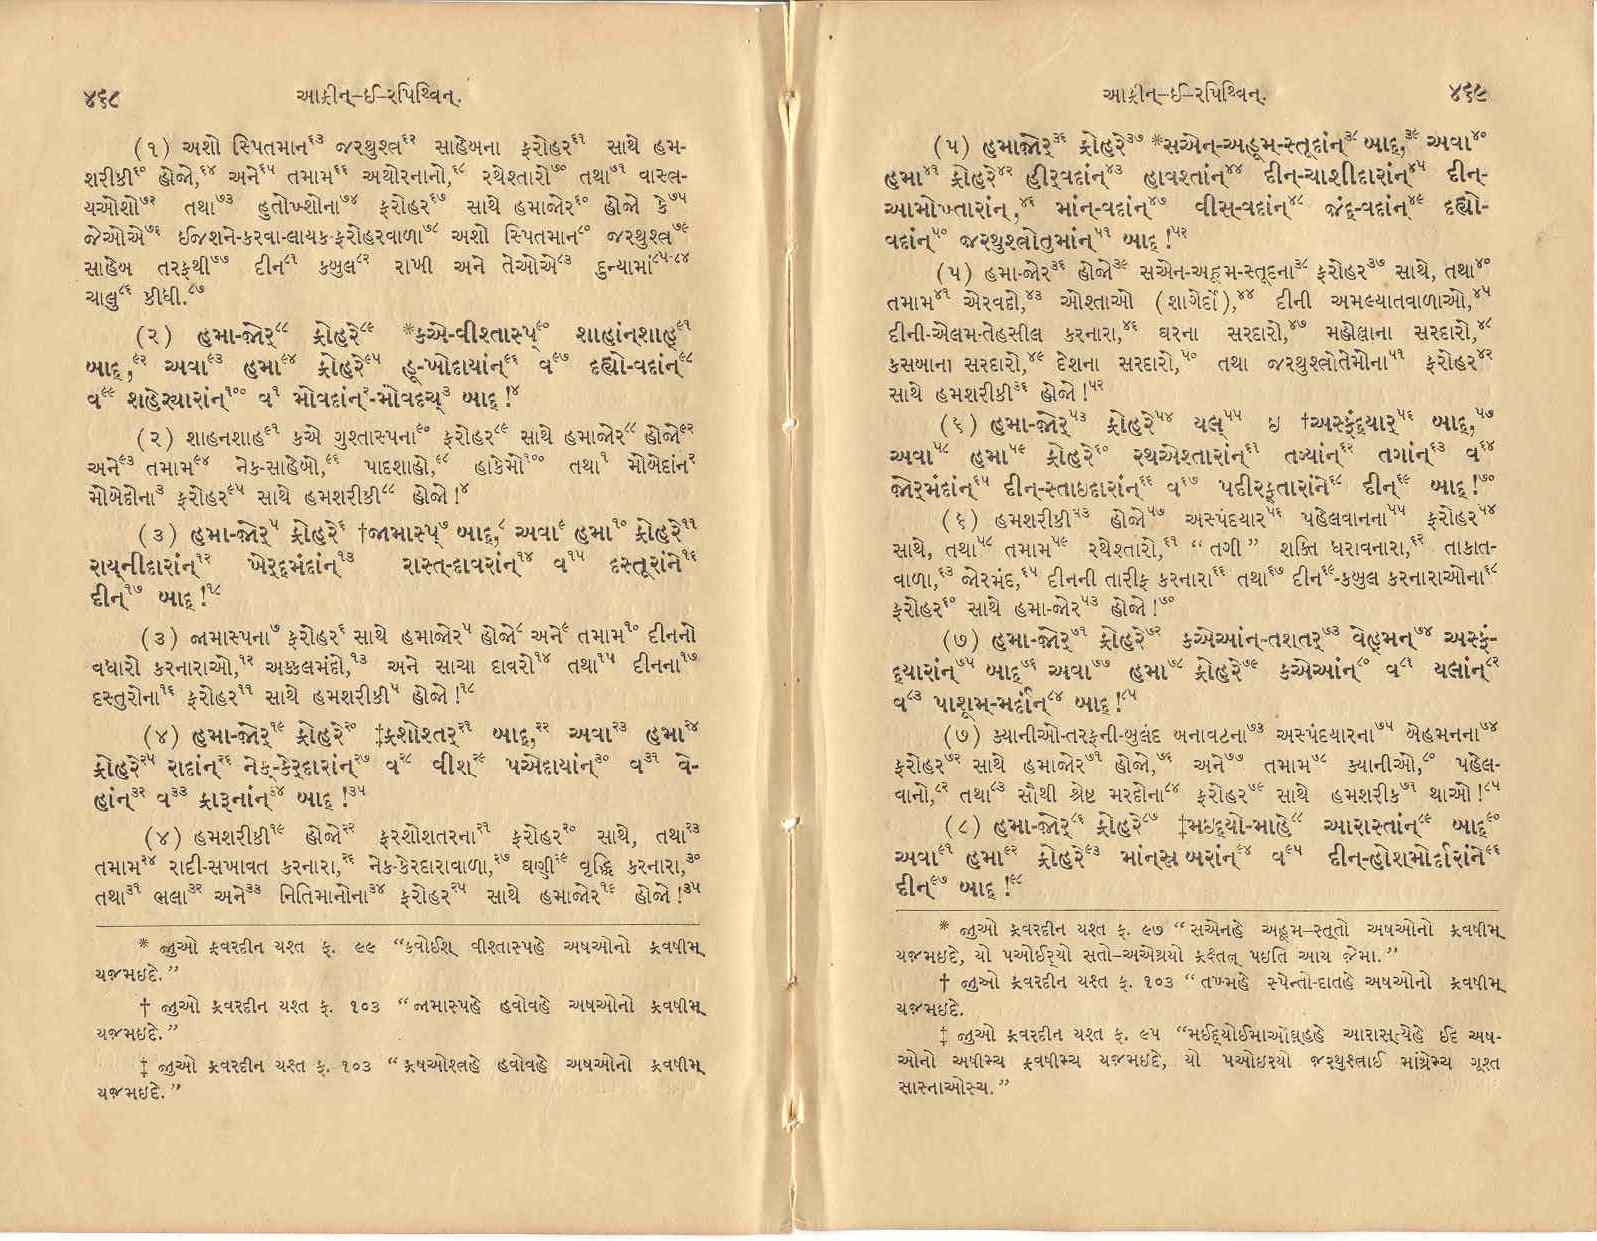 ૪૬૮ આફ્રીન્-ઈ-રપિથ્વિન્.
(૧) અશો સ્પિતમાન૬૩ જરથુશ્ત્ર૬૨ સાહેબના ફરોહર૬૧ સાથે હમ-
શરીકી૬૦ હોજો,૬૪ અને૬૫ તમામ૬૬ અથોરનાનો,૬૮ રથેશ્તારો૭૦ તથા૭૧ વાસ્ત્ર-
યઓશો૭૨ તથા૭૩ હુતોખ્શોના૭૪ ફરોહર૬૭ સાથે હમાજોર૬૦ હોજો કે૭૫
જેઓએ૭૬ ઈજશને-કરવા-લાયક-ફરોહરવાળા૭૮ અશો સ્પિતમાન૮૦ જરથુશ્ત્ર૭૯
સાહેબ તરફથી૭૭ દીન૮૧ કબુલ૮૨ રાખી અને તેઓએ૮૩ દુન્યામાં૮૫-૮૪
ચાલુ૮૬ કીધી.૮૭
(૨) હમા-જોર્૮૮ ફ્રોહરે૮૯ *કએ-વીશ્તાસ્પ્૯૦ શાહાંનશાહ્૯૧
બાદ્,૯૨ અવા૯૩ હમા૯૪ ફ્રોહરે૯૫ હૂ-ખોદાયાંન્૯૬ વ૯૭ દહ્યો-વદાંન્૯૮
વ૯૯ શહેર્યારાંન્૧૦૦ વ૧ મોવદાંન્૨-મોવદચ્૩ બાદ્ !૪
(૨) શાહનશાહ૯૧ કએ ગુશ્તાસ્પના૯૦ ફરોહર૮૯ સાથે હમાજોર૮૮ હોજો૯૨
અને૯૩ તમામ૯૪ નેક-સાહેબો,૯૬ પાદશાહો,૯૮ હાકેમો૧૦૦ તથા૧ મોબેદાંન૨
મોબેદોના૩ ફરોહર૯૫ સાથે હમશરીકી૮૮ હોજો !૪
(૩) હમા-જોર્૫ ફ્રોહરે૬ †જામાસ્પ્૭ બાદ્,૮ અવા૯ હમા૧૦ ફ્રોહરે૧૧
રાય્નીદારાંન્૧૨ ખેર્દ્દમંદાંન્૧૩ રાસ્ત્-દાવરાંન્૧૪ વ૧૫ દસ્તૂરાંને૧૬
દીન્૧૭ બાદ્ !૧૮
(૩) જામાસ્પના૭ ફરોહર૬ સાથે હમાજોર૫ હોજો૮ અને૯ તમામ૧૦ દીનનો
વધારો કરનારાઓ,૧૨ અક્કલમંદો,૧૩ અને સાચા દાવરો૧૪ તથા૧૫ દીનના૧૭
દસ્તુરોના૧૬ ફરોહર૧૧ સાથે હમશરીકી૫ હોજો !૧૮
(૪) હમા-જોર્૧૯ ફ્રોહરે૨૦ ‡ફ્રશોશ્તર્૨૧ બાદ્,૨૨ અવા૨૩ હમા૨૪
ફ્રોહરે૨૫ રાદાંન્૨૬ નેક્-કેર્દારાંન્૨૭ વ૨૮ વીશ્૨૯ પએદાયાંન્૩૦ વ૩૧ વે-
હાંન્૩૨ વ૩૩ ફ્રારૂનાંન્૩૪ બાદ્ !૩૫
(૪) હમશરીકી૧૯ હોજો૨૨ ફરશોશતરના૨૧ ફરોહર૨૦ સાથે, તથા૨૩
તમામ૨૪ રાદી-સખાવત કરનારા,૨૬ નેક-કેરદારાવાળા,૨૭ ઘણી૨૯ વૃદ્ધિ કરનારા,૩૦
તથા૩૧ ભલા૩૨ અને૩૩ નિતિમાનોના૩૪ ફરોહર૨૫ સાથે હમાજોર૧૯ હોજો !૩૫
* જુઓ ફ્રવરદીન યશ્ત ફ. ૯૯ “કવોઈશ્ વીશ્તાસ્પહે અષઓનો ફ્રવષીમ્
યજમઇદે.”
† જુઓ ફ્રવરદીન યશ્ત ફ. ૧૦૩ “જામાસ્પહે હવોવહે અષઓનો ફ્રવષીમ્
યજમઇદે.”
‡ જુઓ ફ્રવરદીન યશ્ત ફ. ૧૦૩ “ફ્રષઓશ્ત્રહે હવોવહે અષઓનો ફ્રવષીમ્
યજમઇદે.”
આફ્રીન્-ઈ-રપિથ્વિન્. ૪૬૯
(૫) હમાજોર્૩૬ ફ્રોહરે૩૭ *સએન-અહૂમ-સ્તૂદાંન૩૮ બાદ્,૩૯ અવા૪૦
હમા૪૧ ફ્રોહરે૪૨ હીર્વદાંન્૪૩ હાવશ્તાંન્૪૪ દીન્-ચાશીદારાંન્૪૫ દીન્-
આમોખ્તારાંન્,૪૬ માંન્-વદાંન્૪૭ વીસ્-વદાંન્૪૮ જંદ્-વદાંન્૪૯ દહ્યો-
વદાંન્૫૦ જરથુશ્ત્રોતુમાંન્૫૧ બાદ્ !૫૨
(૫) હમા-જોર૩૬ હોજો૩૯ સએન-અહૂમ-સ્તૂદના૩૮ ફરોહર૩૭ સાથે, તથા૪૦
તમામ૪૧ એરવદો,૪૩ ઓશ્તાઓ (શાગેર્દો),૪૪ દીની અમલ્યાતવાળાઓ,૪૫
દીની-એલમ-તેહસીલ કરનારા,૪૬ ઘરના સરદારો,૪૭ મહોલ્લાના સરદારો,૪૮
કસબાના સરદારો,૪૯ દેશના સરદારો,૫૦ તથા જરથુશ્ત્રોતેમોના૫૧ ફરોહર૪૨
સાથે હમશરીકી૩૬ હોજો !૫૨
(૬) હમા-જોર્૫૩ ફ્રોહરે૫૪ યલ્૫૫ ઇ †અસ્ફંદ્યાર્૫૬ બાદ્,૫૭
અવા૫૮ હમા૫૯ ફ્રોહરે૬૦ રથએશ્તારાંન્૬૧ તગ્યાંન્૬૨ તગાંન્૬૩ વ૬૪
જોર્મંદાંન્૬૫ દીન્-સ્તાઇદારાંન્૬૬ વ૬૭ પદીરફ્તારાંને૬૮ દીન્૬૯ બાદ્ !૭૦
(૬) હમશરીકી૫૩ હોજો૫૭ અસ્પંદયાર૫૬ પહેલવાનના૫૫ ફરોહર૫૪
સાથે, તથા૫૮ તમામ૫૯ રથેશ્તારો,૬૧ “તગી” શક્તિ ધરાવનારા,૬૨ તાકાત-
વાળા,૬૩ જોરમંદ,૬૫ દીનની તારીફ કરનારા૬૬ તથા૬૭ દીન૬૯-કબુલ કરનારાઓના૬૮
ફરોહર૬૦ સાથે હમા-જોર૫૩ હોજો !૭૦
(૭) હમા-જોર્૭૧ ફ્રોહરે૭૨ કએઆંન્-તશતર્૭૩ વેહૂમન્૭૪ અસ્ફં-
દ્યારાંન્૭૫ બાદ્૭૬ અવા૭૭ હમા૭૮ ફ્રોહરે૭૯ કએઆંન્૮૦ વ૮૧ યલાંન્૮૨
વ૮૩ પાશૂમ્-મર્દાંન્૮૪ બાદ્ !૮૫
(૭) ક્યાનીઓ-તરફની-બુલંદ બનાવટના૭૩ અસ્પંદયારના૭૫ બેહમનના૭૪
ફરોહર૭૨ સાથે હમાજોર૭૧ હોજો,૭૬ અને૭૭ તમામ૭૮ ક્યાનીઓ,૮૦ પહેલ-
વાનો,૮૨ તથા૮૩ સૌથી શ્રેષ્ટ મરદોના૮૪ ફરોહર૭૯ સાથે હમશરીક૭૧ થાઓ !૮૫
(૮) હમા-જોર્૮૬ ફ્રોહરે૮૭ ‡મઇદ્યો-માહે૮૮ આરાસ્તાંન્૮૯ બાદ્૯૦
અવા૯૧ હમા૯૨ ફ્રોહરે૯૩ માંન્સ્ર બરાંન્૯૪ વ૯૫ દીન્-હોશમોર્દારાંને૯૬
દીન્૯૭ બાદ્ !૯૮
* જુઓ ફ્રવરદીન યશ્ત ફ. ૯૭ “સએનહે અહૂમ-સ્તૂતો અષઓનો ફ્રવષીમ્
યજમઇદે, યો પઓઈર્યો સતો-અએથ્રયો ફ્રક્ષ્તત્ પઇતિ આય જેમા.”
† જુઓ ફ્રવરદીન યશ્ત ફ. ૧૦૩ “તખ્મહે સ્પેન્તો-દાતહે અષઓનો ફ્રવષીમ્
યજમઇદે.
‡ જુઓ ફ્રવરદીન યશ્ત ફ. ૯૫ “મઈદ્યોઈમાઓંઘહહે આરાસ્ત્યેહે ઈદ અષ-
ઓનો અષીમ્ચ ફ્રવષીમ્ચ યજમઇદે, યો પઓઇરયો જરથુશ્ત્રાઈ માંથ્રેમ્ચ ગૂશ્ત
સાસ્નાઓસ્ચ.”